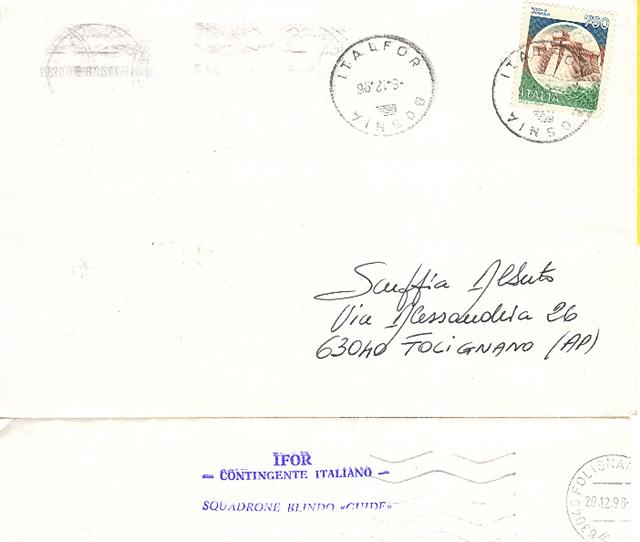 ITALFOR BOSNIA
-6.12.96
750
ITALIA
Scuffia Alberto
Via Alessandria 26
63040 FOLIGNANO (AP)
IFOR
— CONTINGENTE ITALIANO —
SQUADRONE BLINDO «GUIDE»
63040 FOLIGNAN
20.12.96-